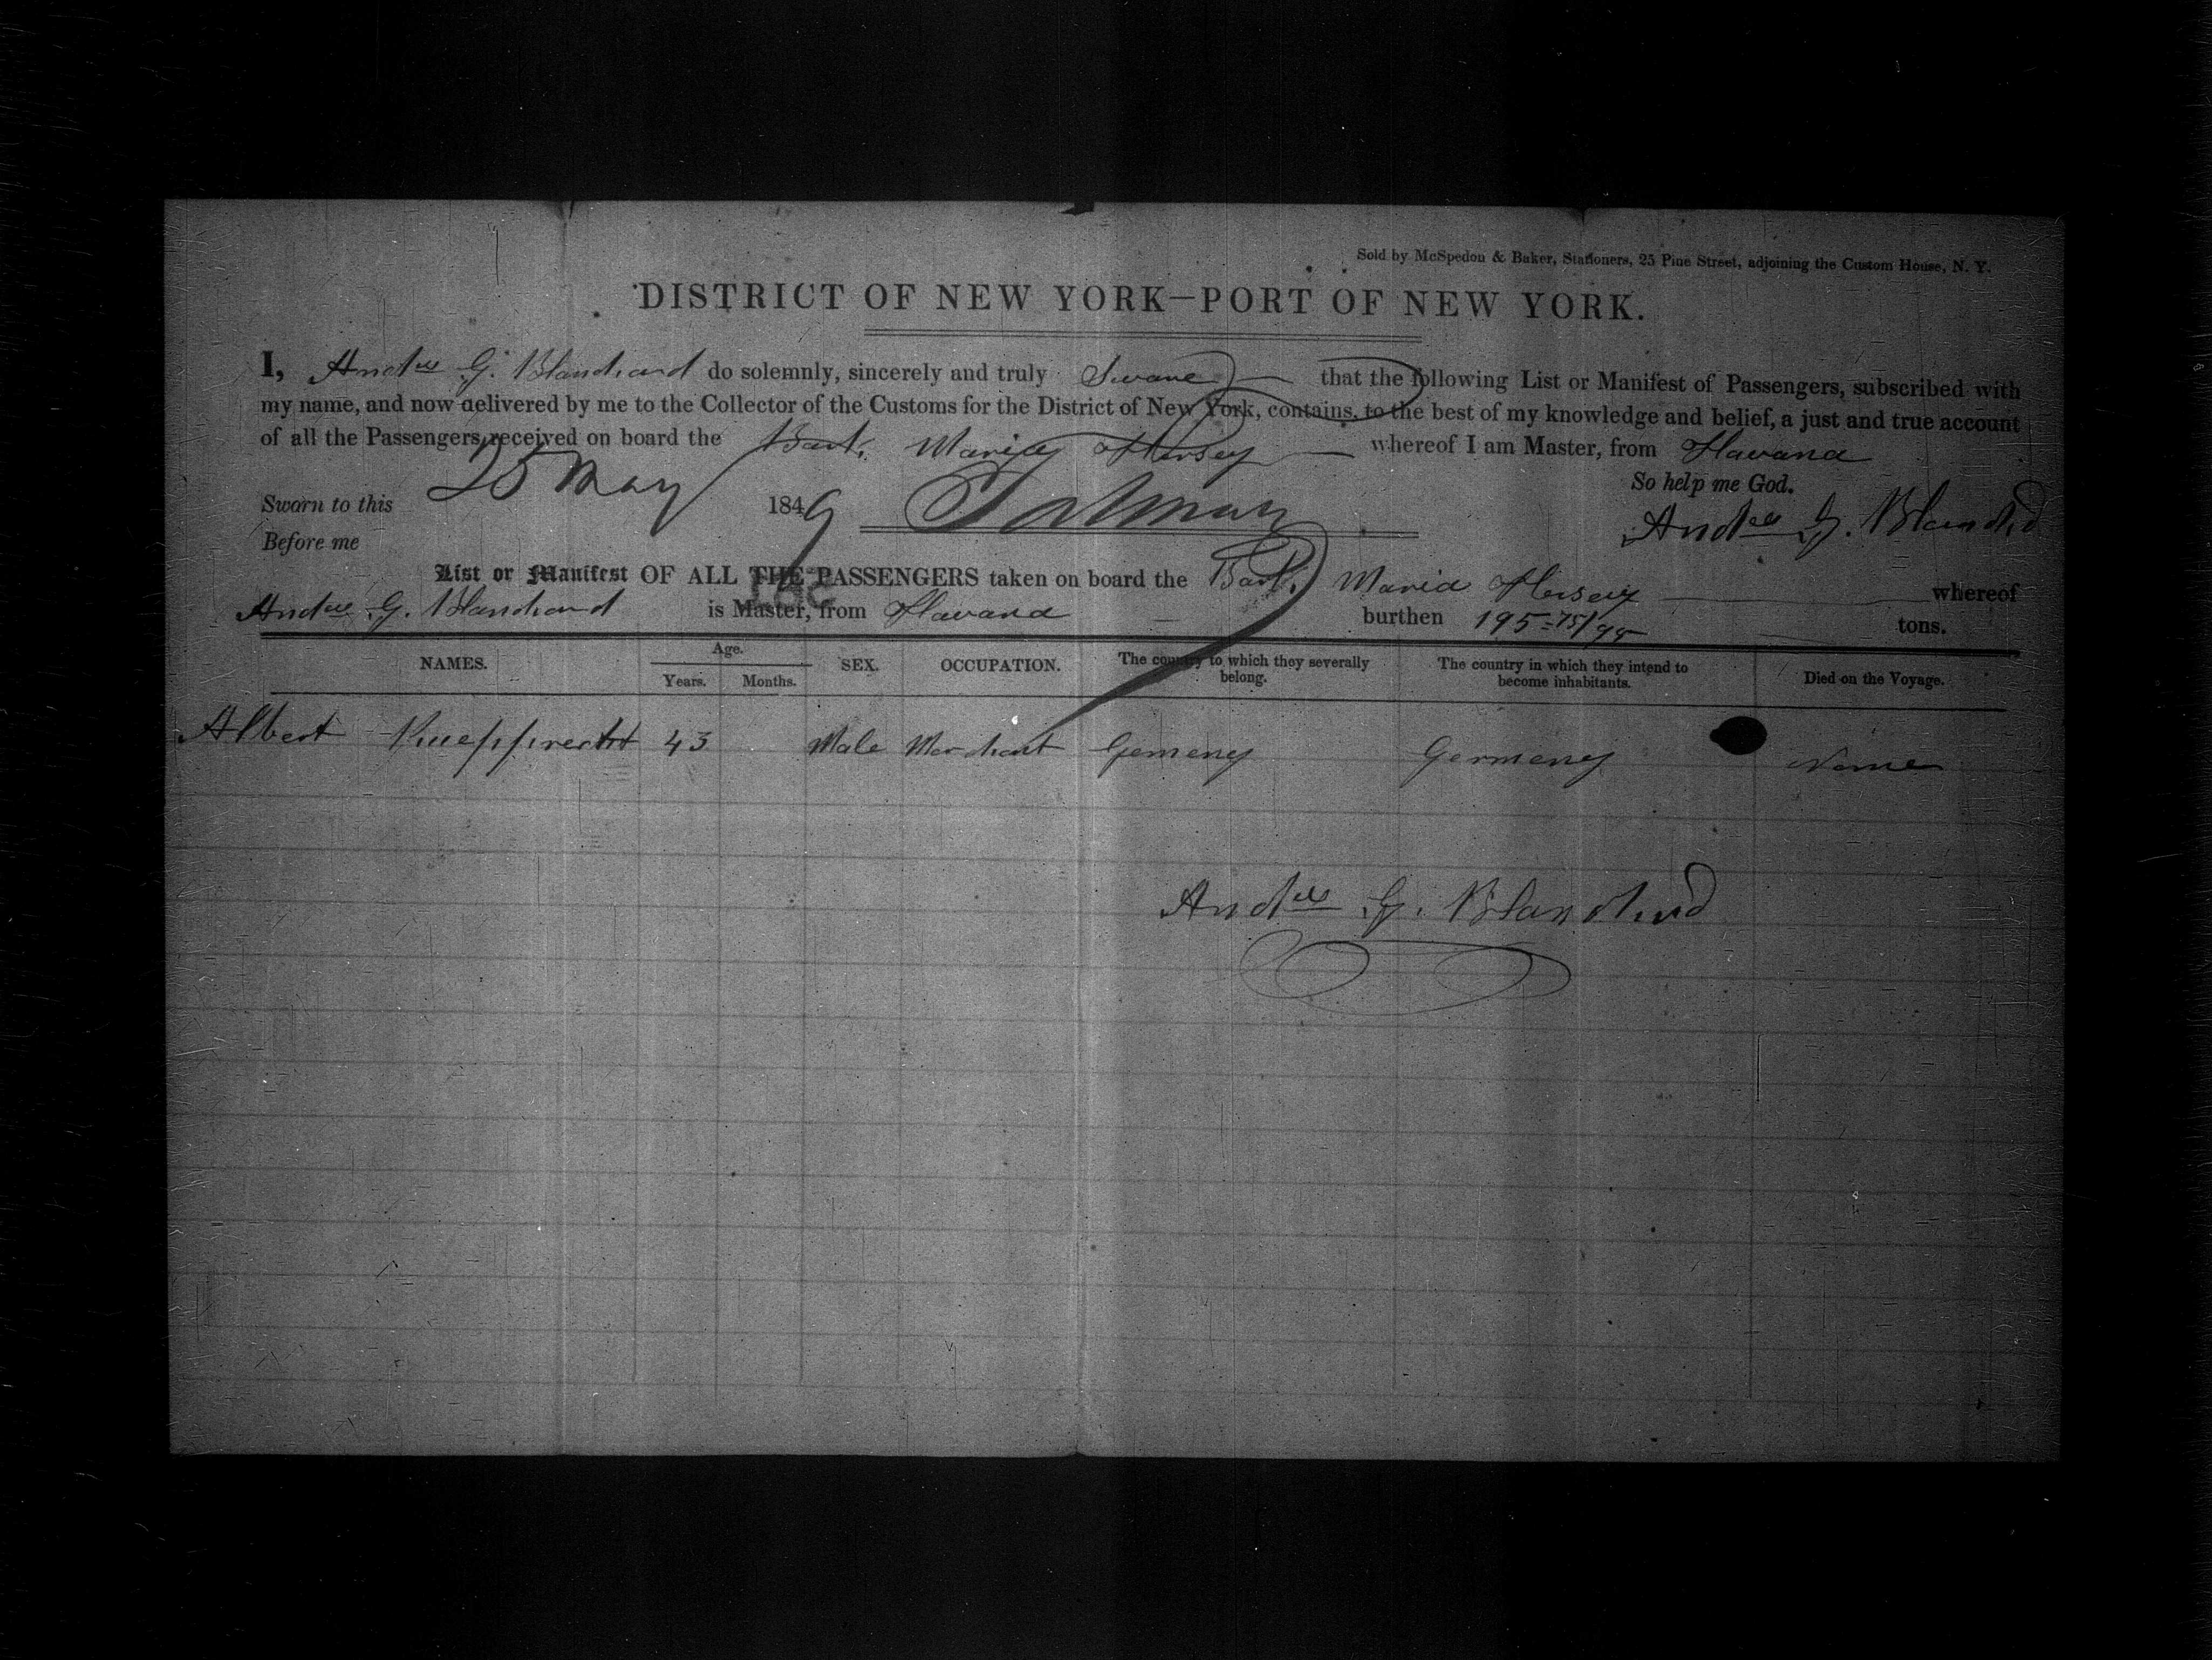 Sold by McSpedon & Baker, Stationers, 25 Pine Street, adjoining the Custom House, N. Y.
DISTRICT OF NEW YORK—PORT OF NEW YORK.
I, And^ew G. Blanchard do solemnly, sincerely and truly Sware that the following List or Manifest of Passengers, subscribed with
my name, and now delivered by me to the Collector of the Customs for the District of New York, contains, to the best of my knowledge and belief, a just and true account
of all the Passengers received on board the Bark Maria Hersey whereof I am Master, from Havana
So help me God.
Sworn to this 25 May 1849
And^ew G. Blanchd
Before me
List or Manifest OF ALL THE PASSENGERS taken on board the Bark Maria Hersey whereof
And^ew G. Blanchard is Master, from Havana burthen 195 75/95 tons.
NAMES. Age. Years. Months. SEX. OCCUPATION. The country to which they severally belong. The country in which they intend to become inhabitants. Died on the Voyage.
Albert 43 Male Merchant Gemeny Germeny None
And^ew G. Blanchd